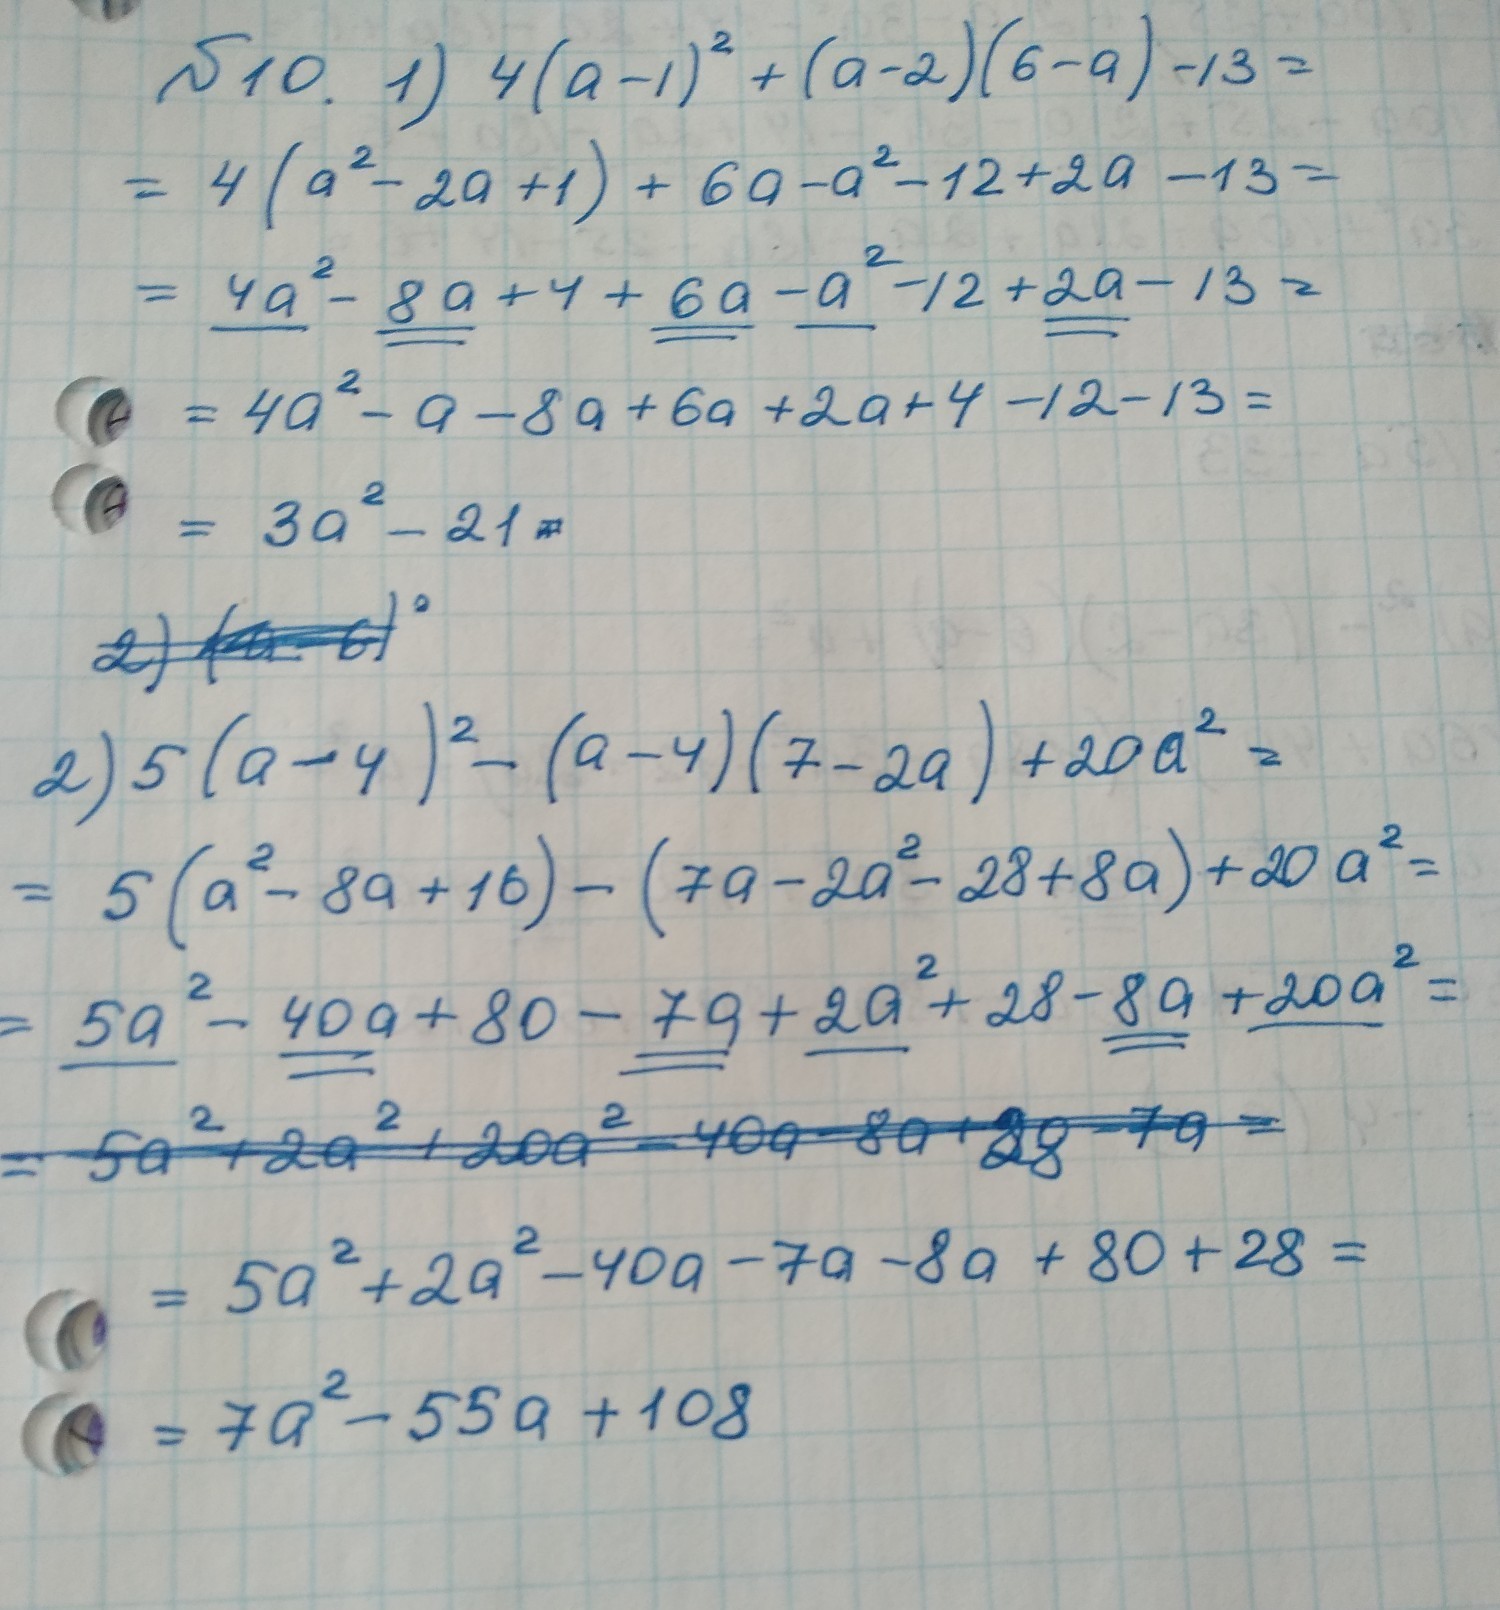 №10. 1) 4(a-1)² + (a-2)(6-a) -13 =
= 4(a² - 2a + 1) + 6a - a² - 12 + 2a - 13 =
= 4a² - 8a + 4 + 6a - a² - 12 + 2a - 13 =
= 4a² - a - 8a + 6a + 2a + 4 - 12 - 13 =
= 3a² - 21
2) 5(a-4)² - (a-4)(7-2a) + 20a² =
= 5(a² - 8a + 16) - (7a - 2a² - 28 + 8a) + 20a² =
= 5a² - 40a + 80 - 7a + 2a² + 28 - 8a + 20a² =
= 5a² + 2a² + 20a² - 40a - 8a + 28 - 7a =
= 5a² + 2a² - 40a - 7a - 8a + 80 + 28 =
= 7a² - 55a + 108